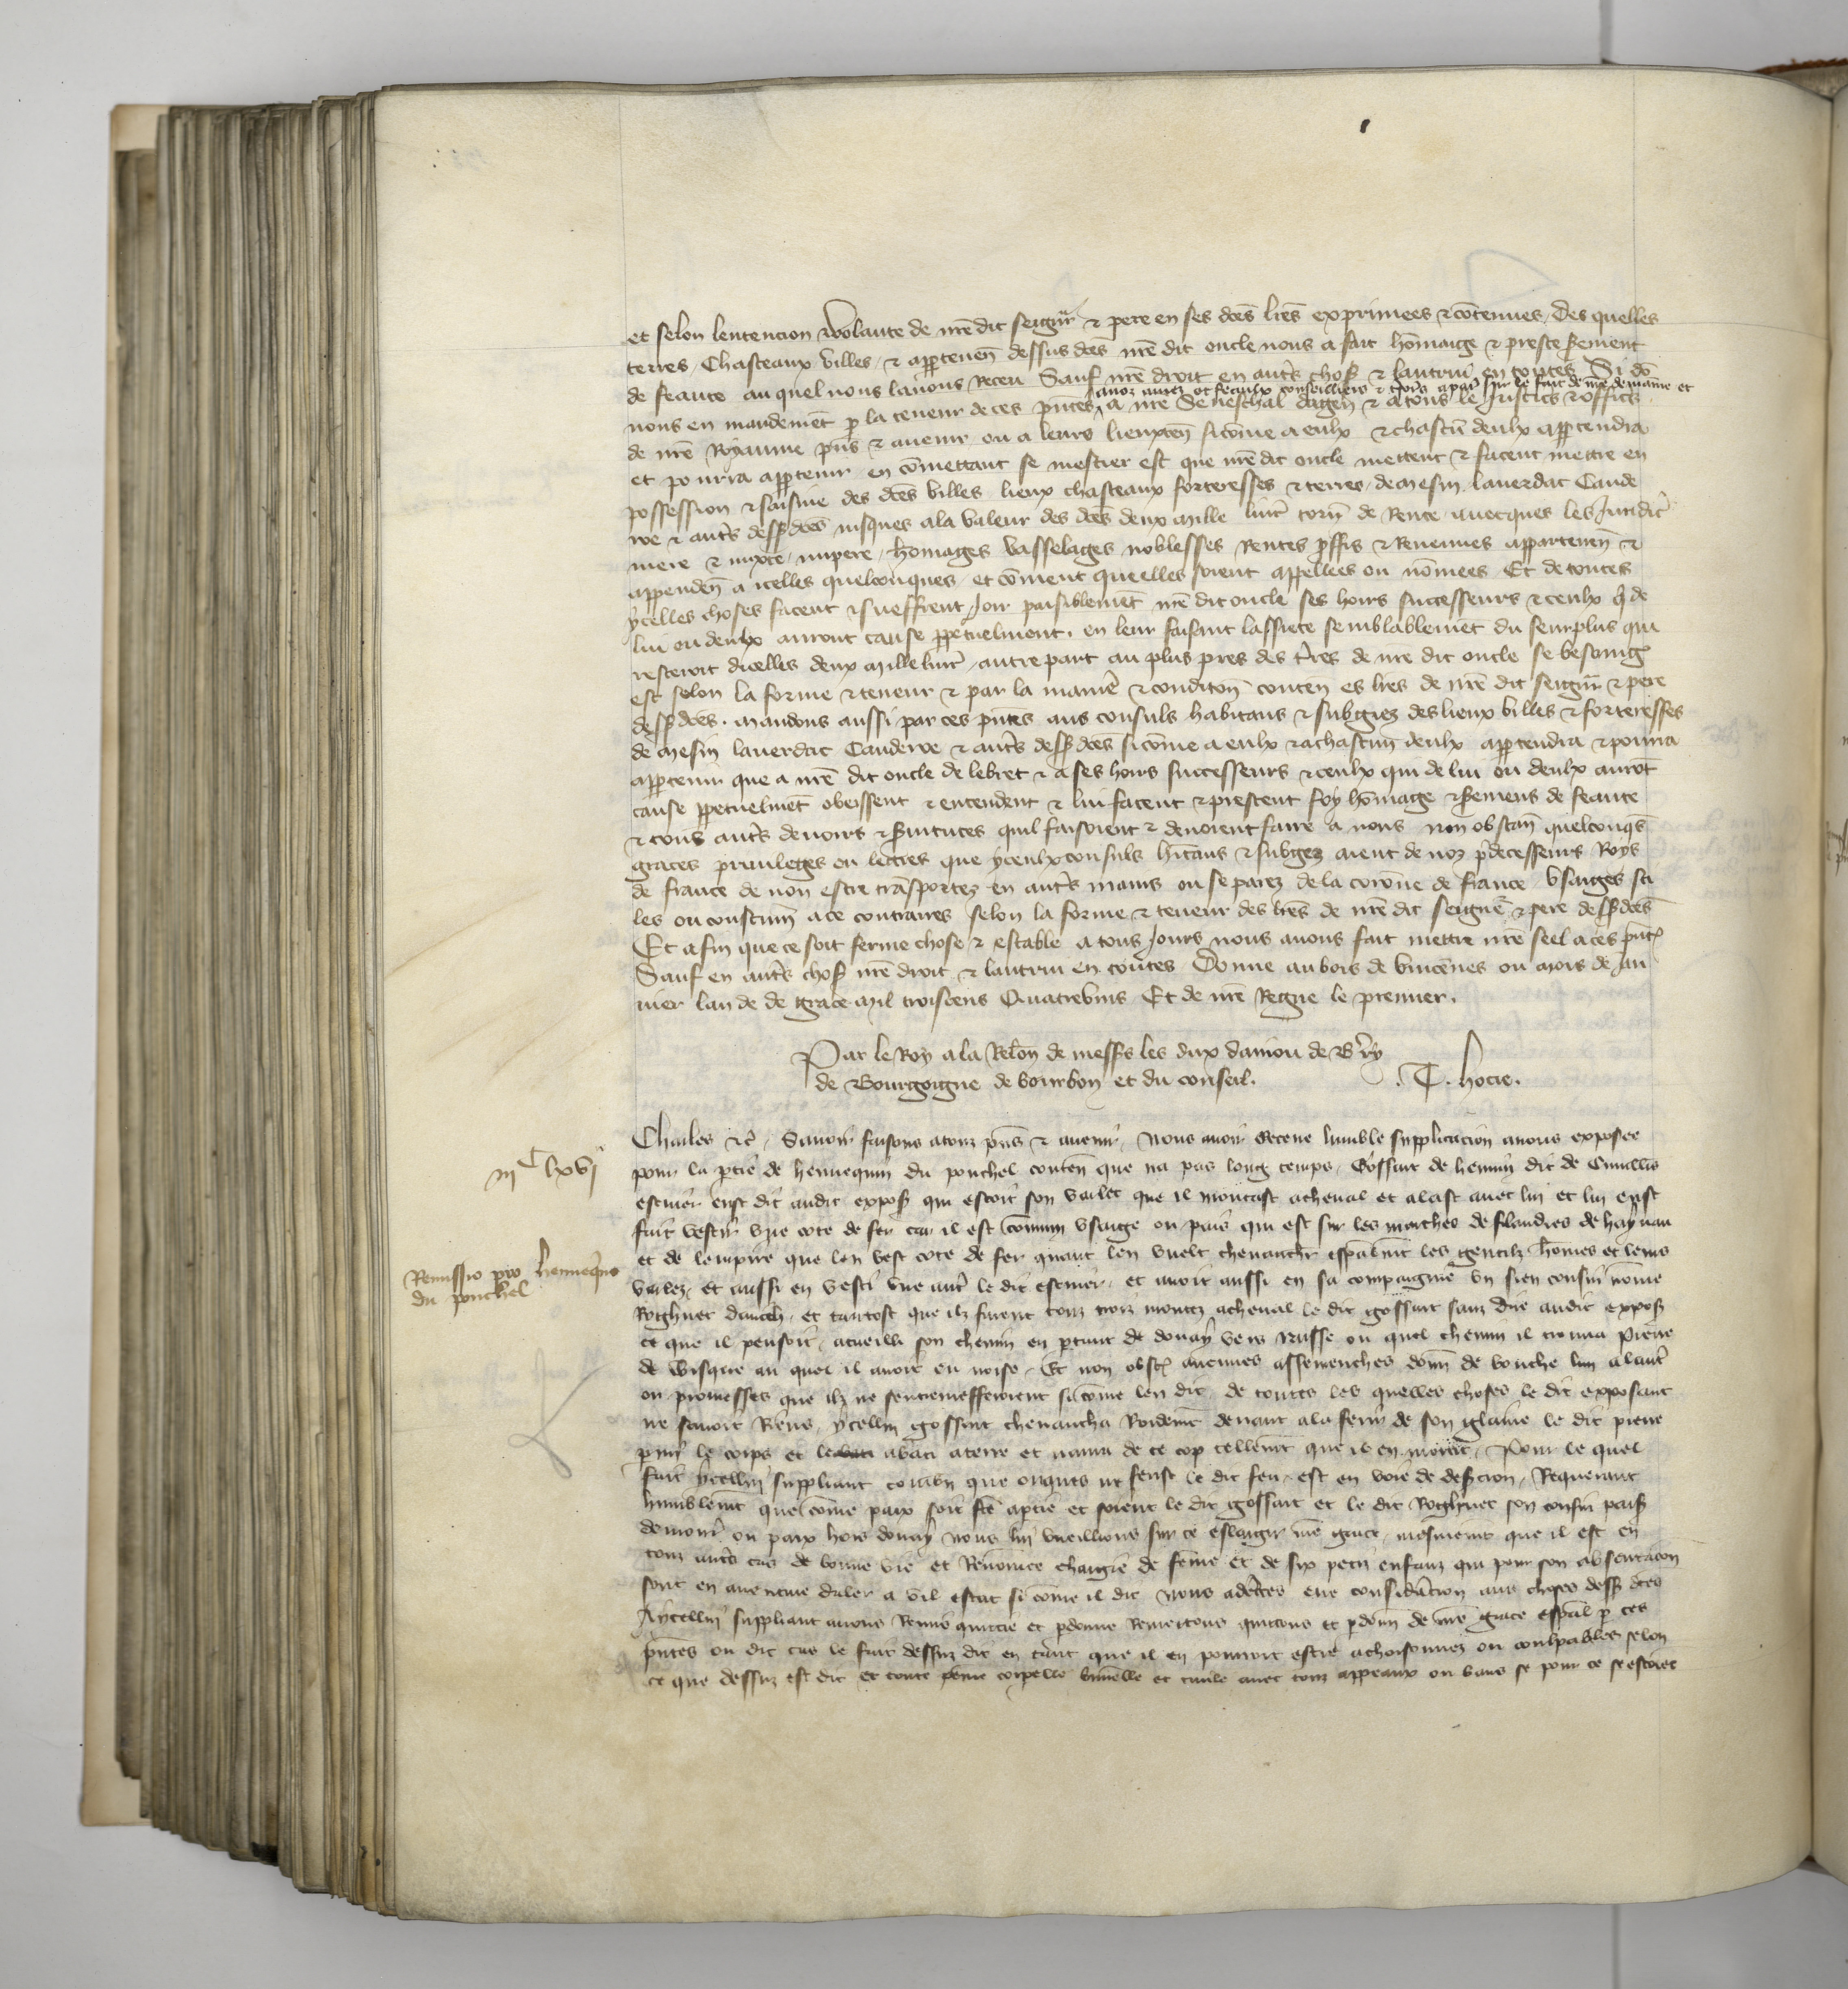 et selon lentencion & volante de nre dit seignr & pere en ses dces lres exprimees & contenues. Des quelles
terres, Chasteaux villes, & appartenen dessus dces nre dit oncle nous a fait homaige & preste serement
de feaute au quel nous lauons Receu Sauf nre droit en autrs chos & lautrui en toutes Si do
anoz amez et feaulx conseilliers & sur le fait de nre demaine et
nons en mandement p la teneur de ces pntes a nre Seneschal dagen & a tous les Justics & offics
de nre Royaume pns & auenir, ou a leurs lieuxten sicome a eulx & chascu deulx appartendra
et pourra appartenir en comettant se mestier est que nre dit oncle mettent & facent mettre en
possession & saisine des dces villes lieux chasteaux forteresses & terres, de mesin, lauerdac Caude
roe & autrs dessdces jusques ala valeur des dces deux mille liur torn de Rente auecques les Juridic
mere & mixte, impere, homages vasselages noblesses Rentes proffis & Reuenues appartenen &
appenden a icelles quelconques, et coment quelles soient appellees ou nomees, Et de toutes
ycelles choses facent & sueffrent Joir paisiblement nre dit oncle ses hoirs successeurs & ceulx q de
lui ou deulx auront cause ppetuelment. en leur faisant lassiete semblablement du seurplus qui
resteroit dicelles deux mille liur autre part au plus pres des tres de nre dit oncle se besoing
est selon la forme & teneur & par la manie & condicon conten es lres de nre dit seignr & pere
dessdces. mandons aussi par ces pntes aus consuls habitans & subgiez des lieux villes & forteresses
de mesin lauerdac Cauderoe & autrs dessdces sicome a eulx & achascun deulx appartendra & pourra
appartenir que a nre dit oncle de lebret & a ses hoirs successeurs & ceulx qui de lui ou deulx auront
cause ppetuelment obeissent & entendent & lui facent & prestent foy homage & seremens de feaute
& tous autrs deuoirs & seruitutes quil faisoient & deuoient faire a nous non obstan quelconqs
graces priuileges ou lettres que yceulx consuls hitans & subgez aient de noz pdecesseurs Roys
de france de non estre transportez en autrs mains ou separez de la corone de france vsaiges sti
les ou coustum a ce contraires selon la forme & teneur des lres de nre dit seignr & pere dessdces
Et afin que ce soit ferme chose & estable a tous Jours nous auons fait mettre nre seel a ces pnt
Sauf en autrs chos nre droit & lautrui en toutes Donne au bois de vincenes ou mois de Jan
uier lan de de grace mil troiscens Quatrevins Et de nre Regne le premier.
Par le Roy a la Relon de messrs les dux daniou de Bry
de Bourgoigne de bourbon et du conseil. . T. hocie.
iiiC lxvi
Charles &c, Sauoir faisons a touz pns & auenir, Nous auoir Receue lumble supplicacion a nous exposee
pour la ptie de hennequin du ponchel conten que na pas long temps, Gossart de henin dit de Cuuillis
escuier eust dit audit expos qui estoit son varlet que il montast acheual et alast auec lui et lui eust
fait vestir vne cote de fer car il est comun vsaige ou pais qui est sur les marches de flandres de haynau
et de lempire que len vest cote de fer quant len vuelt cheuauchr espalmt les gentilz homes et leurs
Remissio pro hennequino
du ponchel
varlez, et aussi en vesti vne autr le dit escuier, et auoit aussi en sa compaignie vn sien cousin nome
Roghuet dauch, et tantost que ilz furent touz trois montez acheual le dit gossart sanz dire audit expos
ce que il pensoit, acueilli son chemin en ptant de douay vers Russe ou quel chemin il trouua pierre
de Wisque au quel il auoit eu noise, Et non obst aucunes asseurenches donn de bouche lun a lautr
ou promesses que ilz ne sentremefferoient sicome len dit, de toutes les quelles choses le dit exposant
ne sauoit Riens, ycellui gossart cheuaucha Roidemt deuant ala ferir de son glaiue le dit pierre
pmi le corps et le abati a terre et naura de ce cop tellemt que il en morut, Pour le quel
fait ycellui suppliant combn que onques ne feust le dit feu, est en voie de descion, Requerant
humblemt que come paix soit fte a ptie et soient le dit gossart et le dit Roghuet son cousin pais
demour ou paix hors douay nous lui vueillions sur ce eslargir nre grace, mesmemt que il est en
touz autrs cas de bonne vie et Renomee chargie de feme et de six petiz enfanz qui pour son absentacon
sont en auenture daler a vil estat si come il dit Nous adctes eue consideracion aus choses dess dces
Aycellui suppliant auons Remis quictie et pdonne Remettons quictons et pdonn de nre grace espal p ces
pntes ou dit cas le fait dessuz dit en tant que il en pourroit estre achoisonnez ou coulpables selon
ce que dessuz est dit et toute peine corpelle criminelle et ciuile auec touz appeaux ou bans se pour ce se estoies